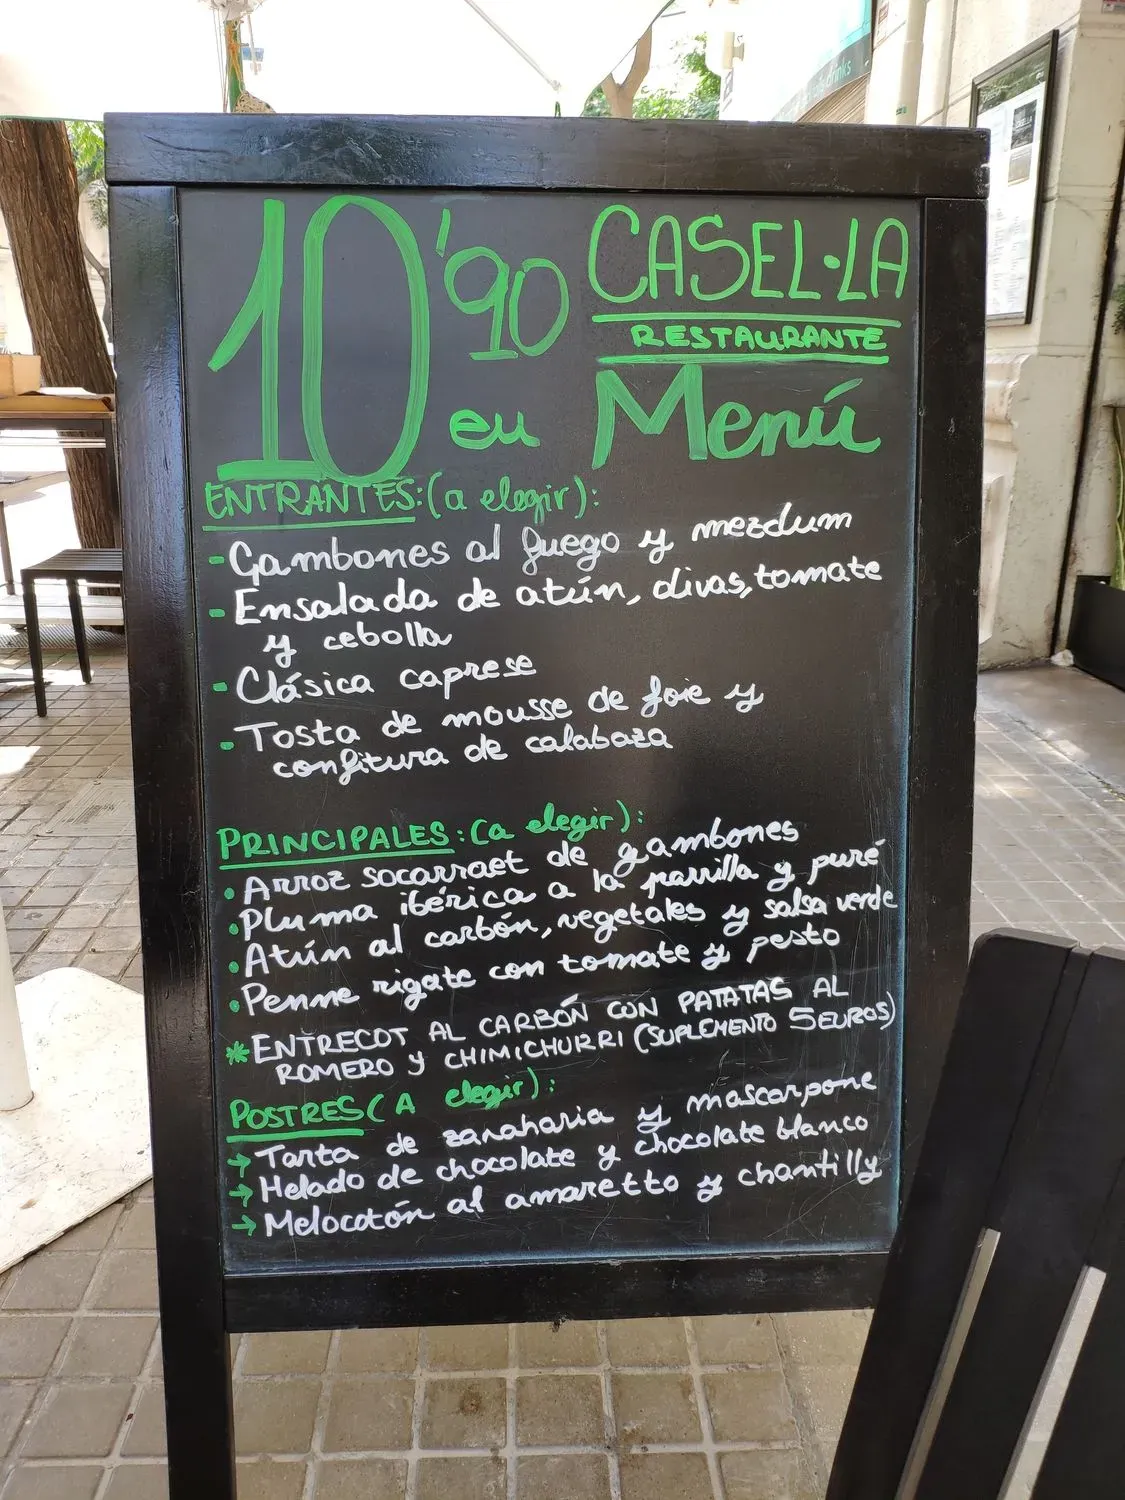 10'90
eu
CASEL·LA
RESTAURANTE
Menú
ENTRANTES: (a elegir):
- Gambones al fuego y mezclum
- Ensalada de atún, olivas, tomate
y cebolla
- Clásica caprese
- Tosta de mousse de foie y
confitura de calabaza
PRINCIPALES: (a elegir):
• Arroz socarraet de gambones
• Pluma ibérica a la parrilla y puré
• Atún al carbón, vegetales y salsa verde
• Penne rigate con tomate y pesto
* ENTRECOT AL CARBÓN CON PATATAS AL
ROMERO y CHIMICHURRI (SUPLEMENTO 5EUROS)
POSTRES (A elegir):
→ Tarta de zanahoria y mascarpone
→ Helado de chocolate y chocolate blanco
→ Melocotón al amaretto y chantilly
drinks